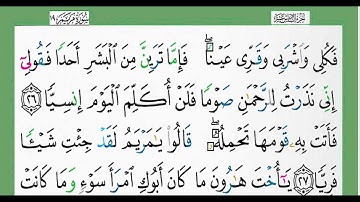 سورة مريم ١٩
فَكُلِى وَٱشْرَبِى وَقَرِّى عَيْنًا ۖ فَإِمَّا تَرَيِنَّ مِنَ ٱلْبَشَرِ أَحَدًا فَقُولِىٓ
إِنِّى نَذَرْتُ لِلرَّحْمَٰنِ صَوْمًا فَلَنْ أُكَلِّمَ ٱلْيَوْمَ إِنسِيًّا ٢٦
فَأَتَتْ بِهِۦ قَوْمَهَا تَحْمِلُهُۥ ۖ قَالُوا۟ يَٰمَرْيَمُ لَقَدْ جِئْتِ شَيْـًٔا
فَرِيًّا ٢٧ يَٰٓأُخْتَ هَٰرُونَ مَا كَانَ أَبُوكِ ٱمْرَأَ سَوْءٍ وَمَا كَانَتْ